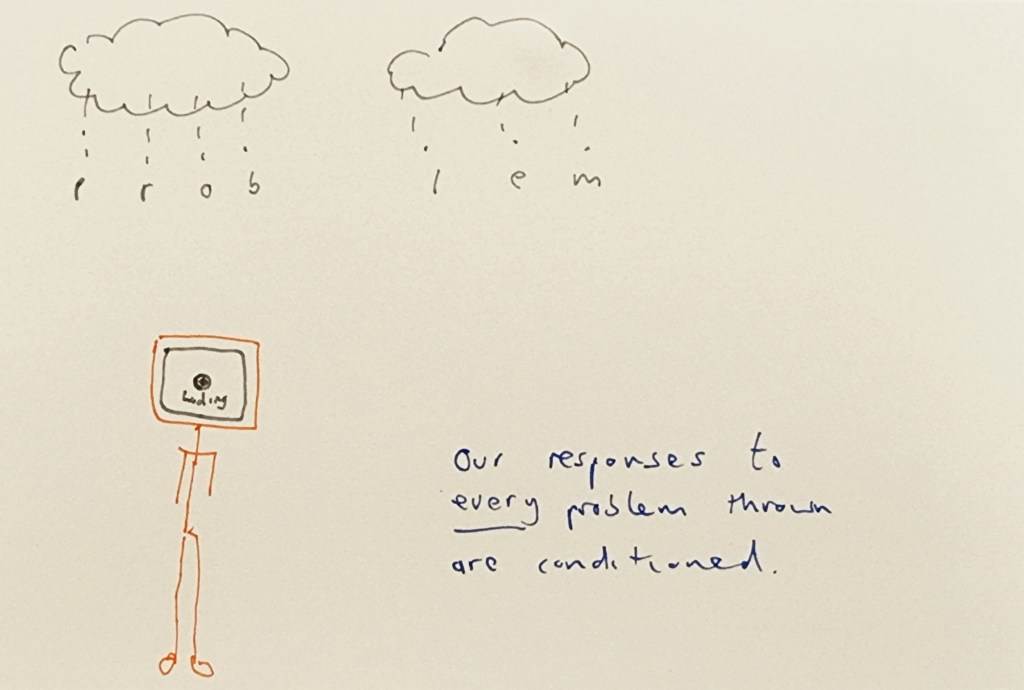 prob lem
Loding
Our responses to
every problem thrown
are conditioned.